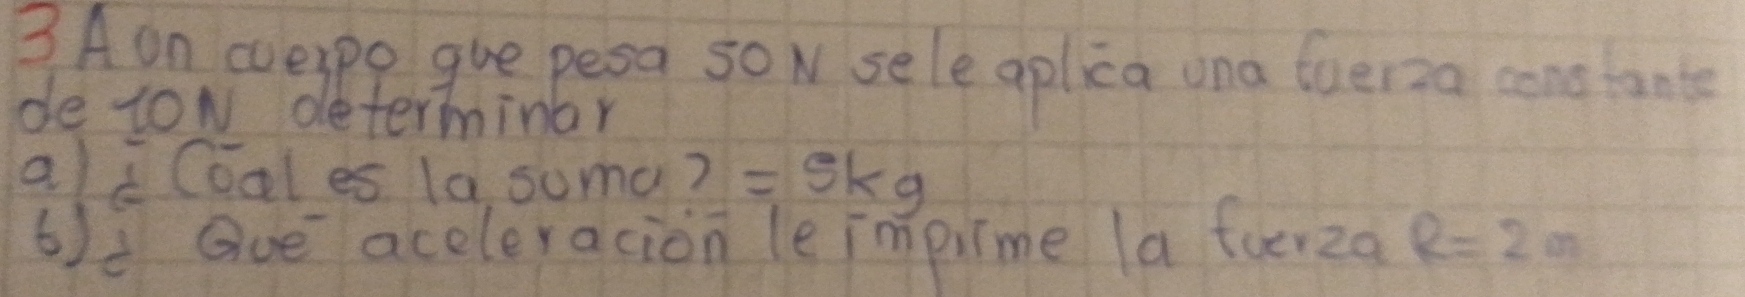 3 A un cuerpo que pesa 50 N se le aplica una fuerza constante
de 10 N determinar
a) ¿ Cúal es la suma? = 5kg
b) ¿ Qué aceleración le imprime la fuerza R = 2 m